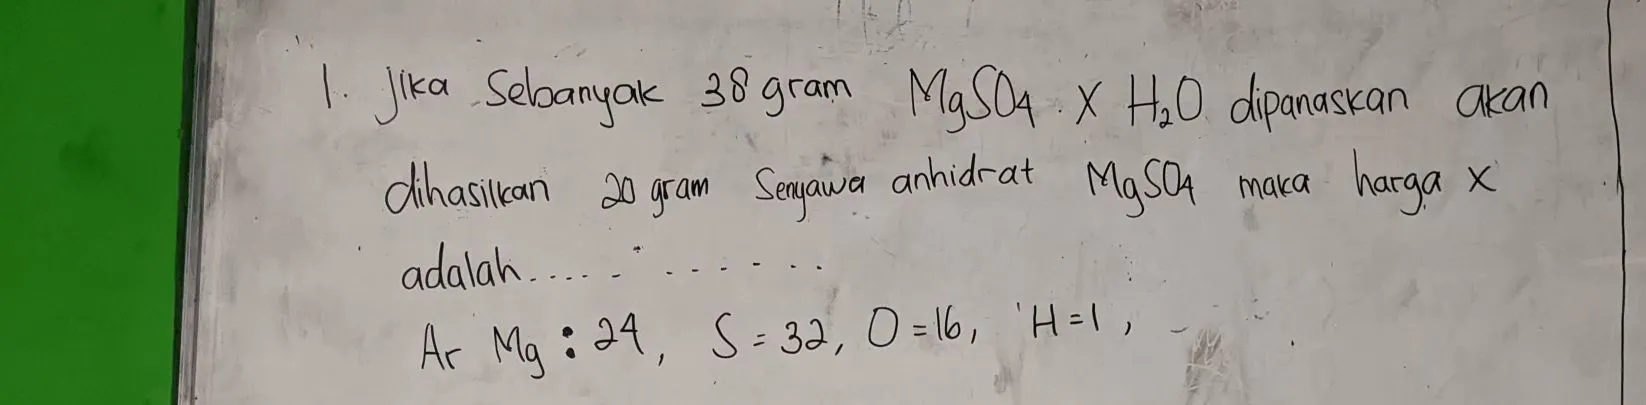 1. Jika Sebanyak 38 gram MgSO4 . X H₂O dipanaskan akan
dihasilkan 20 gram Senyawa anhidrat MgSO4 maka harga x
adalah............
Ar Mg : 24, S = 32, O = 16, H = 1,